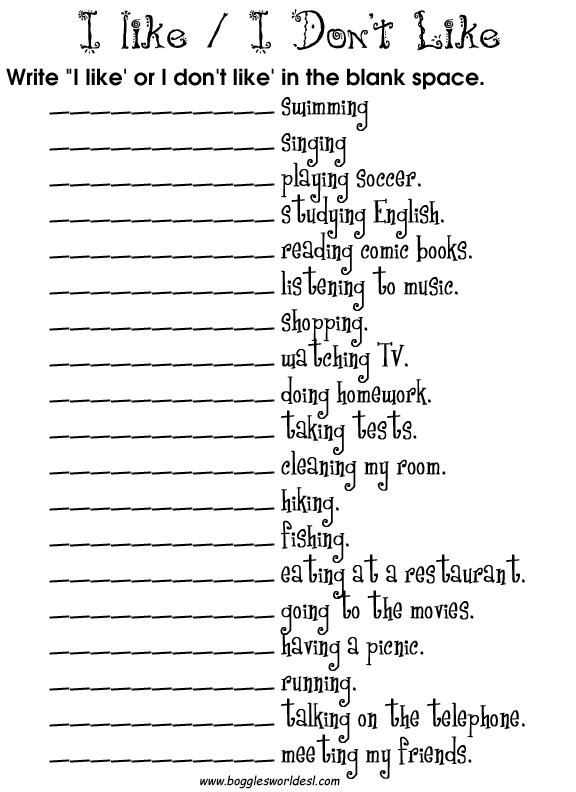 I like / I Don't Like
Write "I like' or I don't like' in the blank space.
___________ swimming
___________ singing
___________ playing soccer.
___________ studying English.
___________ reading comic books.
___________ listening to music.
___________ shopping.
___________ watching TV.
___________ doing homework.
___________ taking tests.
___________ cleaning my room.
___________ hiking.
___________ fishing.
___________ eating at a restaurant.
___________ going to the movies.
___________ having a picnic.
___________ running.
___________ talking on the telephone.
___________ meeting my friends.
www.bogglesworldesl.com